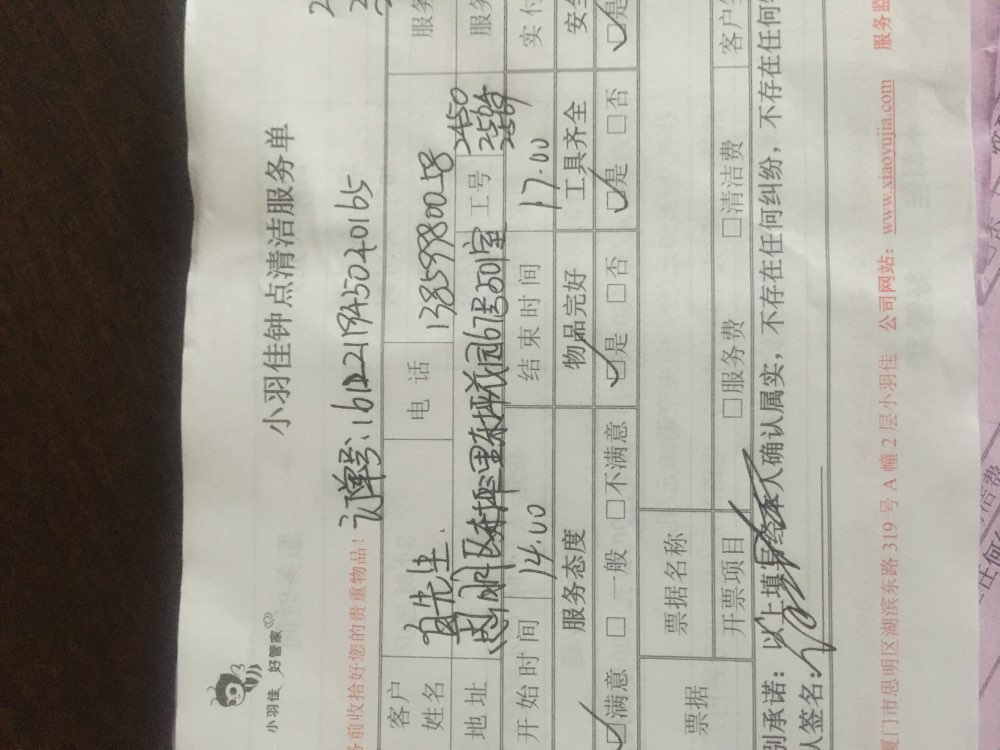 小羽佳 好管家
小羽佳钟点清洁服务单
务前收拾好您的贵重物品!
订单号:1612211945040165
客户姓名
先生
电话
13859980058
服务
地址
思明区
园67号501室
工号
2450
2564
服务
开始时间
14.00
结束时间
17.00
实付
服务态度
物品完好
工具齐全
安全
☑满意 □一般 □不满意
☑是 □否
☑是 □否
☑是
票据
票据名称
开票项目
□服务费
□清洁费
客户
别承诺:以上填写经本人确认属实,不存在任何纠纷,不存在任何
人签名:
厦门市思明区湖滨东路319号A幢2层小羽佳 公司网站:www.xiaoyujia.com 服务监